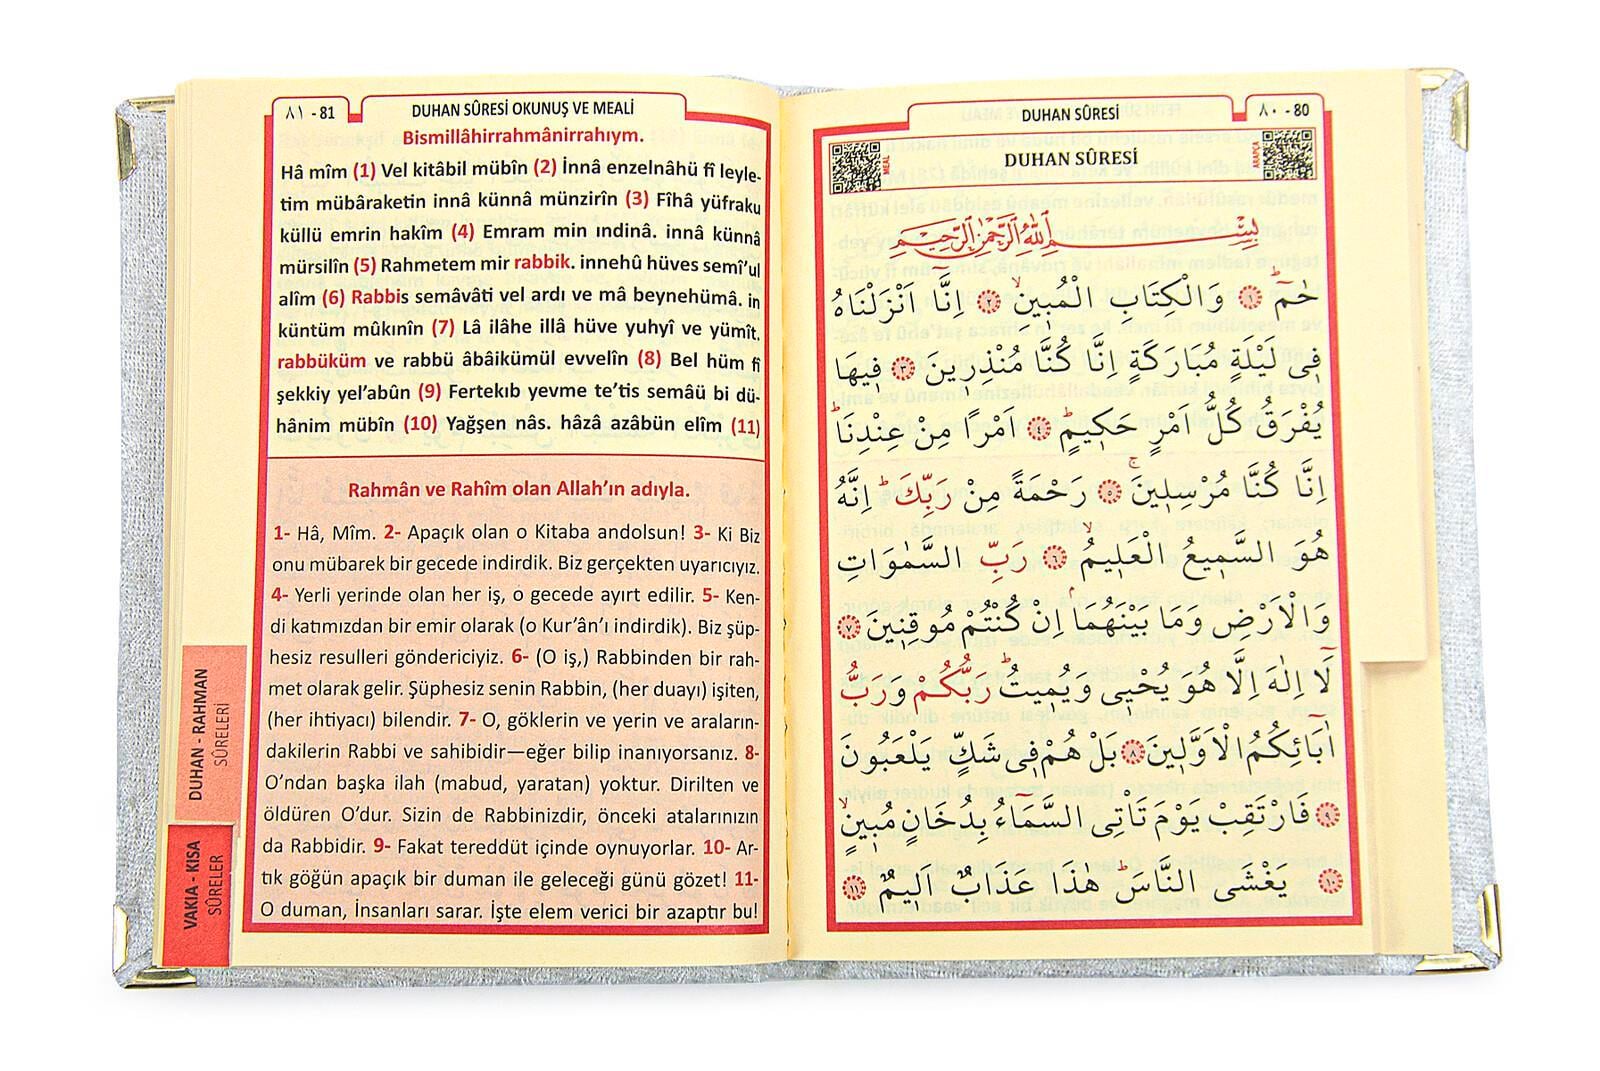 ٨١ - 81
DUHAN SÛRESİ OKUNUŞ VE MEALİ
Bismillâhirrahmânirrahıym.
Hâ mîm (1) Vel kitâbil mübîn (2) İnnâ enzelnâhü fî leyle-
tim mübâraketin innâ künnâ münzirîn (3) Fîhâ yüfraku
küllü emrin hakîm (4) Emram min ındinâ. innâ künnâ
mürsilîn (5) Rahmetem mir rabbik. innehû hüves semî’ul
alîm (6) Rabbis semâvâti vel ardı ve mâ beynehümâ. in
küntüm mûkınîn (7) Lâ ilâhe illâ hüve yuhyî ve yümît.
rabbüküm ve rabbü âbâikümül evvelîn (8) Bel hüm fî
şekkiy yel’abûn (9) Fertekıb yevme te’tis semâü bi dü-
hânim mübîn (10) Yağşen nâs. hâzâ azâbün elîm (11)
Rahmân ve Rahîm olan Allah’ın adıyla.
1- Hâ, Mîm. 2- Apaçık olan o Kitaba andolsun! 3- Ki Biz
onu mübarek bir gecede indirdik. Biz gerçekten uyarıcıyız.
4- Yerli yerinde olan her iş, o gecede ayırt edilir. 5- Ken-
di katımızdan bir emir olarak (o Kur’ân’ı indirdik). Biz şüp-
hesiz resulleri göndericiyiz. 6- (O iş,) Rabbinden bir rah-
met olarak gelir. Şüphesiz senin Rabbin, (her duayı) işiten,
(her ihtiyacı) bilendir. 7- O, göklerin ve yerin ve araların-
dakilerin Rabbi ve sahibidir—eğer bilip inanıyorsanız. 8-
O’ndan başka ilah (mabud, yaratan) yoktur. Dirilten ve
öldüren O’dur. Sizin de Rabbinizdir, önceki atalarınızın
da Rabbidir. 9- Fakat tereddüt içinde oynuyorlar. 10- Ar-
tık göğün apaçık bir duman ile geleceği günü gözet! 11-
O duman, İnsanları sarar. İşte elem verici bir azaptır bu!
DUHAN - RAHMAN
SÛRELERİ
VAKIA - KISA
SÛRELER
DUHAN SÛRESİ
٨٠ - 80
MEAL
DUHAN SÛRESİ
ARAPÇA
بِسْمِ اللّٰهِ الرَّحْمٰنِ الرَّحٖيمِ
حٰمٓ ۚ ﴿١﴾ وَالْكِتَابِ الْمُبٖينِ ۙ ﴿٢﴾ اِنَّٓا اَنْزَلْنَاهُ
فٖى لَيْلَةٍ مُبَارَكَةٍ اِنَّا كُنَّا مُنْذِرٖينَ ﴿٣﴾ فٖيهَا
يُفْرَقُ كُلُّ اَمْرٍ حَكٖيمٍ ۙ ﴿٤﴾ اَمْرًا مِنْ عِنْدِنَا ؕ
اِنَّا كُنَّا مُرْسِلٖينَ ۚ ﴿٥﴾ رَحْمَةً مِنْ رَبِّكَ ؕ اِنَّهُ
هُوَ السَّمٖيعُ الْعَلٖيمُ ۙ ﴿٦﴾ رَبِّ السَّمٰوَاتِ
وَالْاَرْضِ وَمَا بَيْنَهُمَا ۘ اِنْ كُنْتُمْ مُوقِنٖينَ ﴿٧﴾
لَٓا اِلٰهَ اِلَّا هُوَ يُحْيٖى وَيُمٖيتُ ؕ رَبُّكُمْ وَرَبُّ
اٰبَٓائِكُمُ الْاَوَّلٖينَ ﴿٨﴾ بَلْ هُمْ فٖى شَكٍّ يَلْعَبُونَ
﴿٩﴾ فَارْتَقِبْ يَوْمَ تَاْتِى السَّمَٓاءُ بِدُخَانٍ مُبٖينٍ ۙ
﴿١٠﴾ يَغْشَى النَّاسَ ؕ هٰذَا عَذَابٌ اَلٖيمٌ ﴿١١﴾